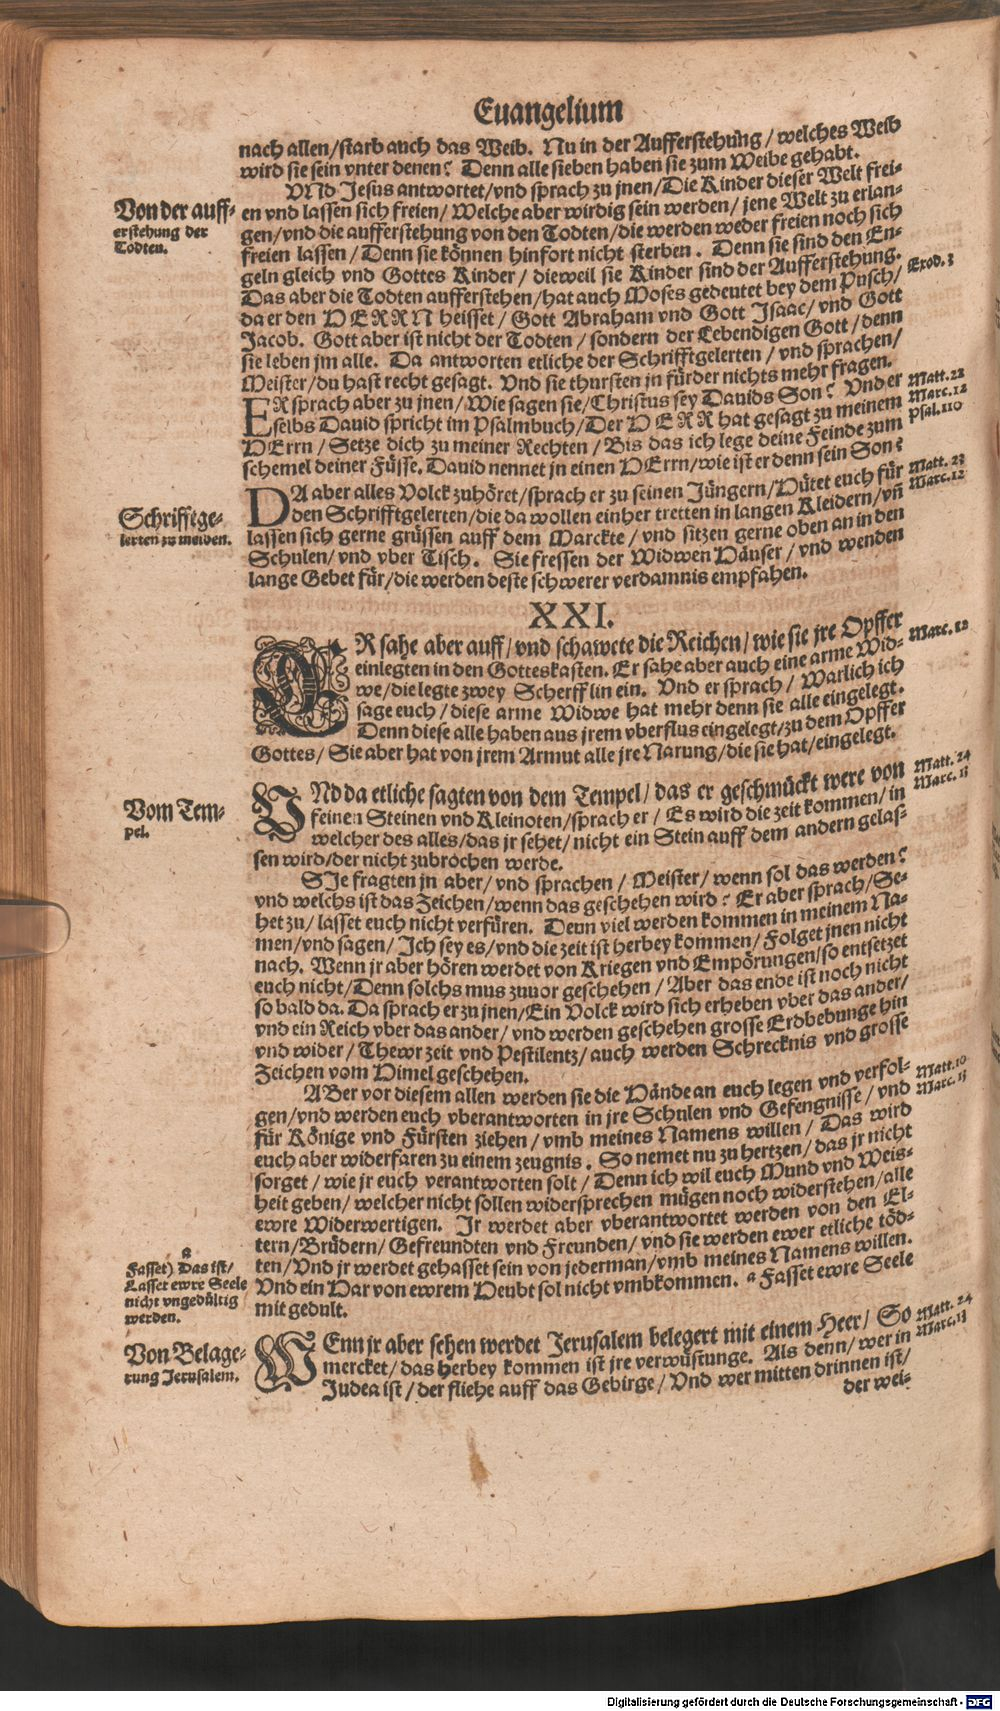 Euangelium
nach allen/starb auch das Weib. Nu in der Aufferstehung/welches Weib
wird sie sein vnter denen? Denn alle sieben haben sie zum Weibe gehabt.
VNd Jesus antwortet/vnd sprach zu jnen/Die Kinder dieser Welt frei-
Von der auff-
erstehung der
Todten.
en vnd lassen sich freien/Welche aber wirdig sein werden/jene Welt zu erlan-
gen/vnd die aufferstehung von den Todten/die werden weder freien noch sich
freien lassen/Denn sie können hinfort nicht sterben. Denn sie sind den En-
geln gleich vnd Gottes Kinder/dieweil sie Kinder sind der Aufferstehung.
Das aber die Todten aufferstehen/hat auch Moses gedeutet bey dem Pusch/
Exod. 3
da er den HERRN heisset/Gott Abraham vnd Gott Isaac/vnd Gott
Jacob. Gott aber ist nicht der Todten/sondern der Lebendigen Gott/denn
sie leben jm alle. Da antworten etliche der Schrifftgelerten/vnd sprachen/
Meister/du hast recht gesagt. Vnd sie thursten jn fürder nichts mehr fragen.
ER sprach aber zu jnen/Wie sagen sie/Christus sey Dauids Son? Vnd er
Matt. 22
Marc. 12
Psal. 110
selbs Dauid spricht im Psalmbuch/Der HERR hat gesagt zu meinem
HErrn/Setze dich zu meiner Rechten/Bis das ich lege deine Feinde zum
schemel deiner Füsse. Dauid nennet jn einen HErrn/wie ist er denn sein Son?
DA aber alles Volck zuhöret/sprach er zu seinen Jüngern/Hütet euch für
Matt. 23
Marc. 12
Schrifftge-
lerten zu meiden.
den Schrifftgelerten/die da wollen einher tretten in langen Kleidern/vñ
lassen sich gerne grüssen auff dem Marckte/vnd sitzen gerne oben an in den
Schulen/vnd vber Tisch. Sie fressen der Widwen Häuser/vnd wenden
lange Gebet für/die werden deste schwerer verdamnis empfahen.
XXI.
ER sahe aber auff/vnd schawete die Reichen/wie sie jre Opffer
Marc. 12
einlegten in den Gotteskasten. Er sahe aber auch eine arme Wid-
we/die legte zwey Scherfflin ein. Vnd er sprach/Warlich ich
sage euch/diese arme Widwe hat mehr denn sie alle eingelegt.
Denn diese alle haben aus jrem vberflus eingelegt/zu dem Opffer
Gottes/Sie aber hat von jrem Armut alle jre Narung/die sie hat/eingelegt.
VNd da etliche sagten von dem Tempel/das er geschmückt were von
Matt. 24
Marc. 13
Vom Tem-
pel.
feinen Steinen vnd Kleinoten/sprach er/Es wird die zeit kommen/in
welcher des alles/das jr sehet/nicht ein Stein auff dem andern gelas-
sen wird/der nicht zubrochen werde.
SIe fragten jn aber/vnd sprachen/Meister/wenn sol das werden?
vnd welchs ist das Zeichen/wenn das geschehen wird? Er aber sprach/Se-
het zu/lasset euch nicht verfüren. Denn viel werden kommen in meinem Na-
men/vnd sagen/Ich sey es/vnd die zeit ist herbey kommen/Folget jnen nicht
nach. Wenn jr aber hören werdet von Kriegen vnd Empörungen/so entsetzet
euch nicht/Denn solchs mus zuuor geschehen/Aber das ende ist noch nicht
so bald da. Da sprach er zu jnen/Ein Volck wird sich erheben vber das ander/
vnd ein Reich vber das ander/vnd werden geschehen grosse Erdbebunge hin
vnd wider/Thewr zeit vnd Pestilentz/auch werden Schrecknis vnd grosse
Zeichen vom Himel geschehen.
ABer vor diesem allen werden sie die Hände an euch legen vnd verfol-
Matt. 10
Marc. 13
gen/vnd werden euch vberantworten in jre Schulen vnd Gefengnisse/vnd
für Könige vnd Fürsten ziehen/vmb meines Namens willen/Das wird
euch aber widerfaren zu einem zeugnis. So nemet nu zu hertzen/das jr nicht
sorget/wie jr euch verantworten solt/Denn ich wil euch Mund vnd Weis-
heit geben/welcher nicht sollen widersprechen mügen noch widerstehen/alle
ewre Widerwertigen. Ir werdet aber vberantwortet werden von den El-
tern/Brüdern/Gefreundten vnd Freunden/vnd sie werden ewer etliche töd-
ten/Vnd jr werdet gehasset sein von jederman/vmb meines Namens willen.
Vnd ein Har von ewrem Heubt sol nicht vmbkommen. a Fasset ewre Seele
mit gedult.
a
Fasset) Das ist/
Lasset ewre Seele
nicht vngedültig
werden.
WEnn jr aber sehen werdet Jerusalem belegert mit einem Heer/So
Matt. 24
Marc. 13
Von Belage-
rung Jerusalem.
mercket/das herbey kommen ist jre verwüstunge. Als denn/wer in
Judea ist/der fliehe auff das Gebirge/Vnd wer mitten drinnen ist/
der wei-
Digitalisierung gefördert durch die Deutsche Forschungsgemeinschaft - DFG